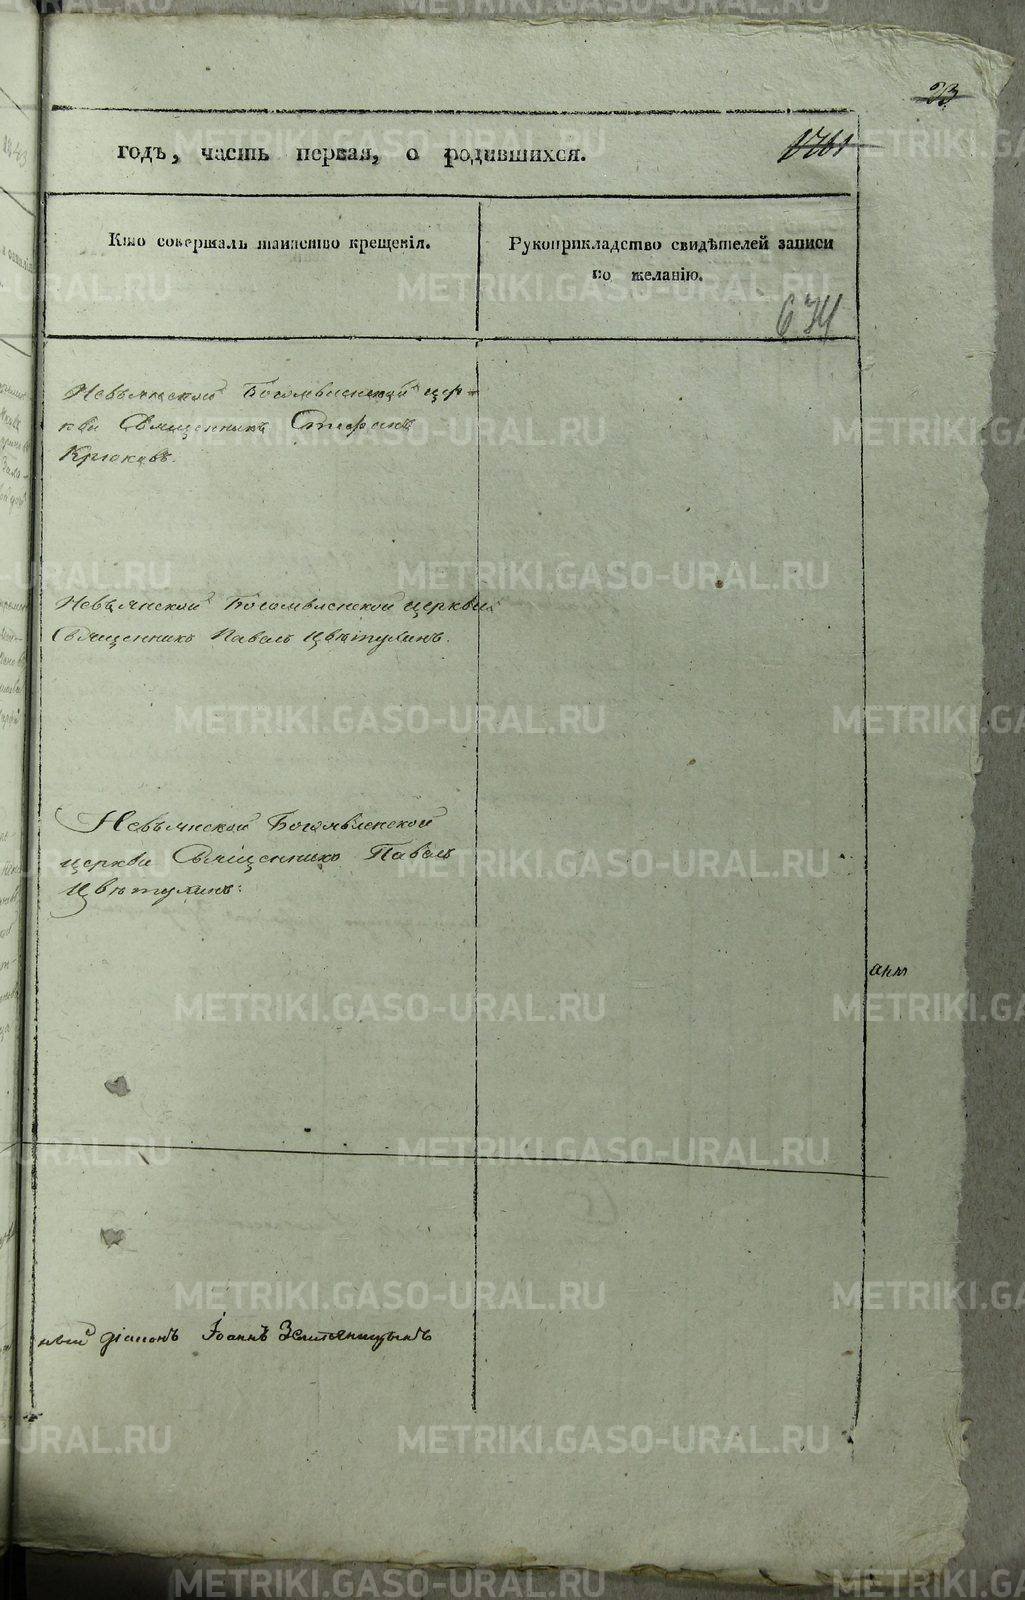 23
годъ, часть первая, о родившихся.
1761
Кто совершалъ таинство крещенія.
Рукоприкладство свидѣтелей записи
по желанію.
634
Невьянской Богоявленской цер-
кви Священникъ Стефанъ
Крюковъ.
Невьянской Богоявленской церкви
Священникъ Павелъ Цвѣтухинъ.
Невьянской Богоявленской
церкви Священникъ Павелъ
Цвѣтухинъ.
діаконъ Іоаннъ
METRIKI.GASO-URAL.RU